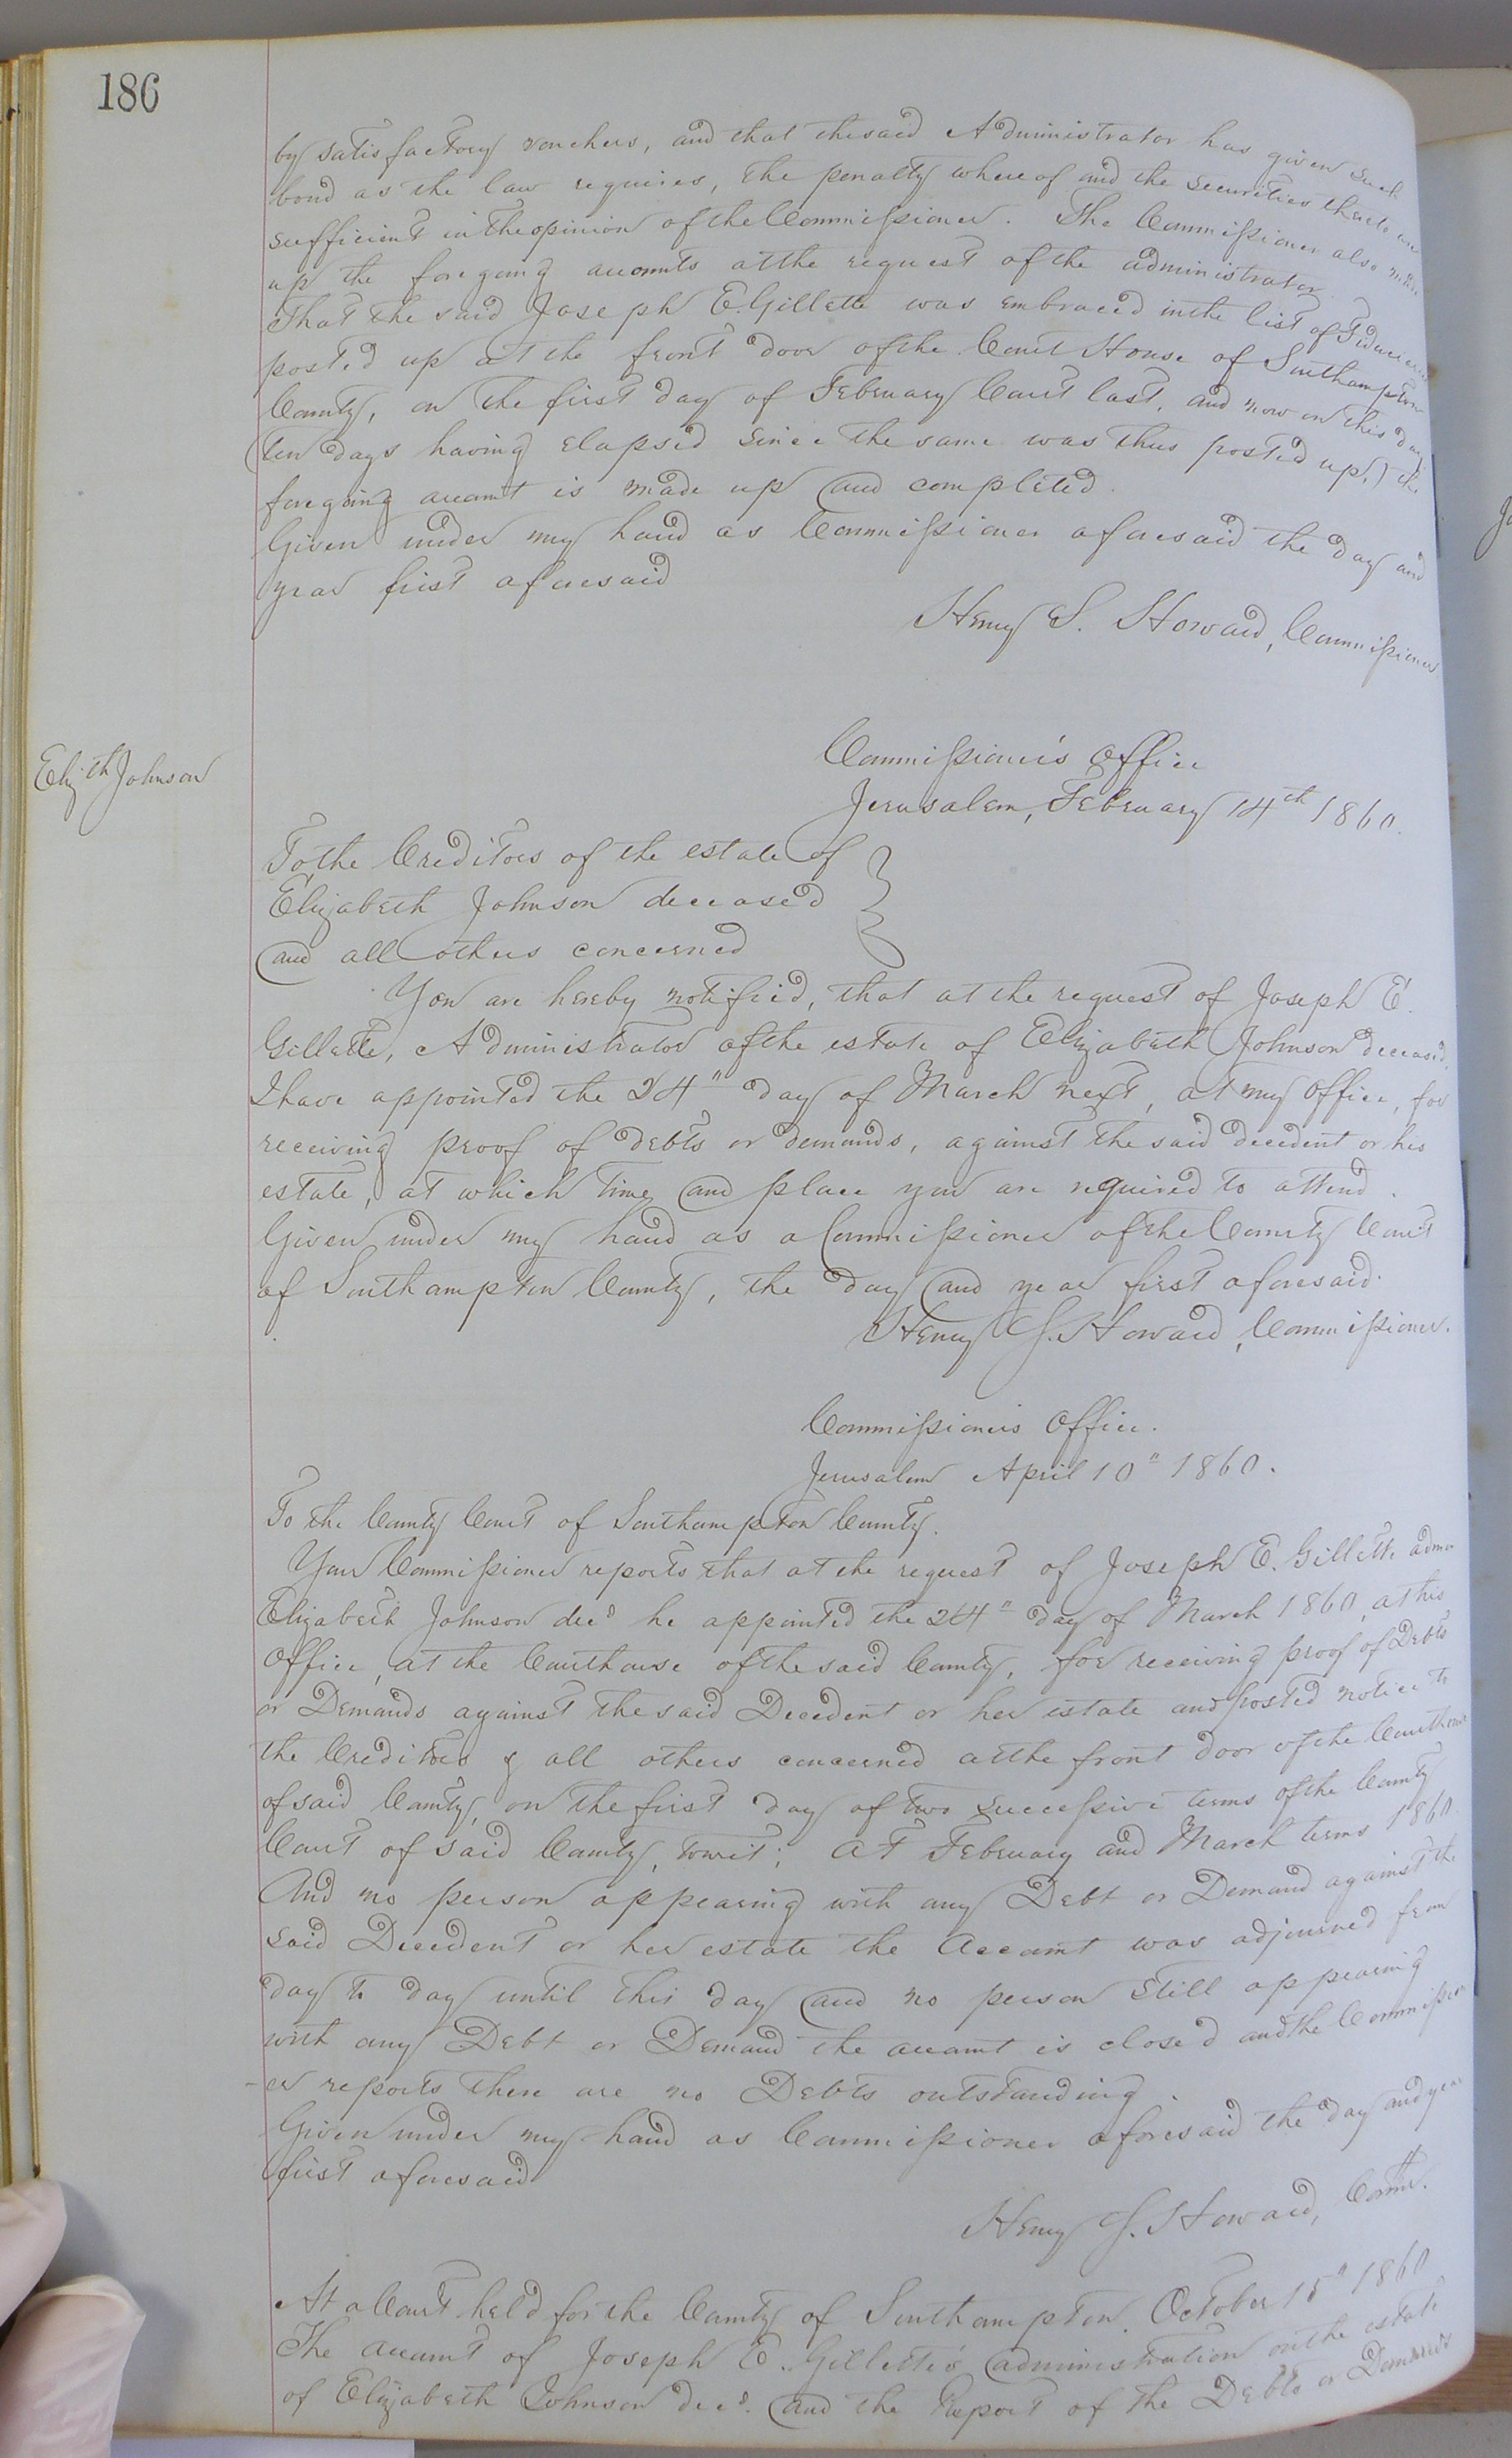 186
by satisfactory vouchers, and that the said Administrator has given such
bond as the law requires, the penalty whereof and the securities thereto are
sufficient in the opinion of the Commissioner. The Commissioner also made
up the foregoing accounts at the request of the administrator.
That the said Joseph E. Gillette was embraced in the list of Fiduciaries
posted up at the front door of the Court House of Southampton
County, on the first day of February Court last, and now on this day
(ten days having elapsed since the same was thus posted up,) the
foregoing account is made up and completed.
Given under my hand as Commissioner aforesaid the day and
year first aforesaid
Henry S. Howard, Commissioner
Commissioner's Office
Elizth Johnson
Jerusalem, February 14th 1860.
To the Creditors of the estate of
Elizabeth Johnson deceased
and all others concerned
You are hereby notified, that at the request of Joseph E.
Gillette, Administrator of the estate of Elizabeth Johnson deceased,
I have appointed the 24" day of March next, at my office, for
receiving proof of debts or demands, against the said decedent or his
estate, at which time and place you are required to attend.
Given under my hand as a Commissioner of the County Court
of Southampton County, the day and year first aforesaid.
Henry S. Howard, Commissioner.
Commissioner's Office.
Jerusalem April 10" 1860.
To the County Court of Southampton County.
Your Commissioner reports that at the request of Joseph E. Gillette admor
Elizabeth Johnson decd he appointed the 24" day of March 1860, at his
Office, at the Courthouse of the said County, for receiving proof of Debts
or Demands against the said Decedent or her estate and posted notice to
the Creditors & all others concerned at the front door of the Courthouse
of said County, on the first day of two successive terms of the County
Court of said County, towit; at February and March terms 1860.
And no person appearing with any Debt or Demand against the
said Decedent or her estate the Account was adjourned from
day to day until this day and no person still appearing
with any Debt or Demand the account is closed and the Commission
-er reports there are no Debts outstanding.
Given under my hand as Commissioner aforesaid the day and year
first aforesaid
Henry S. Howard, Comr.
At a Court held for the County of Southampton, October 15" 1860
The account of Joseph E. Gillette's administration on the estate
of Elizabeth Johnson decd. and the Report of the Debts or Demands